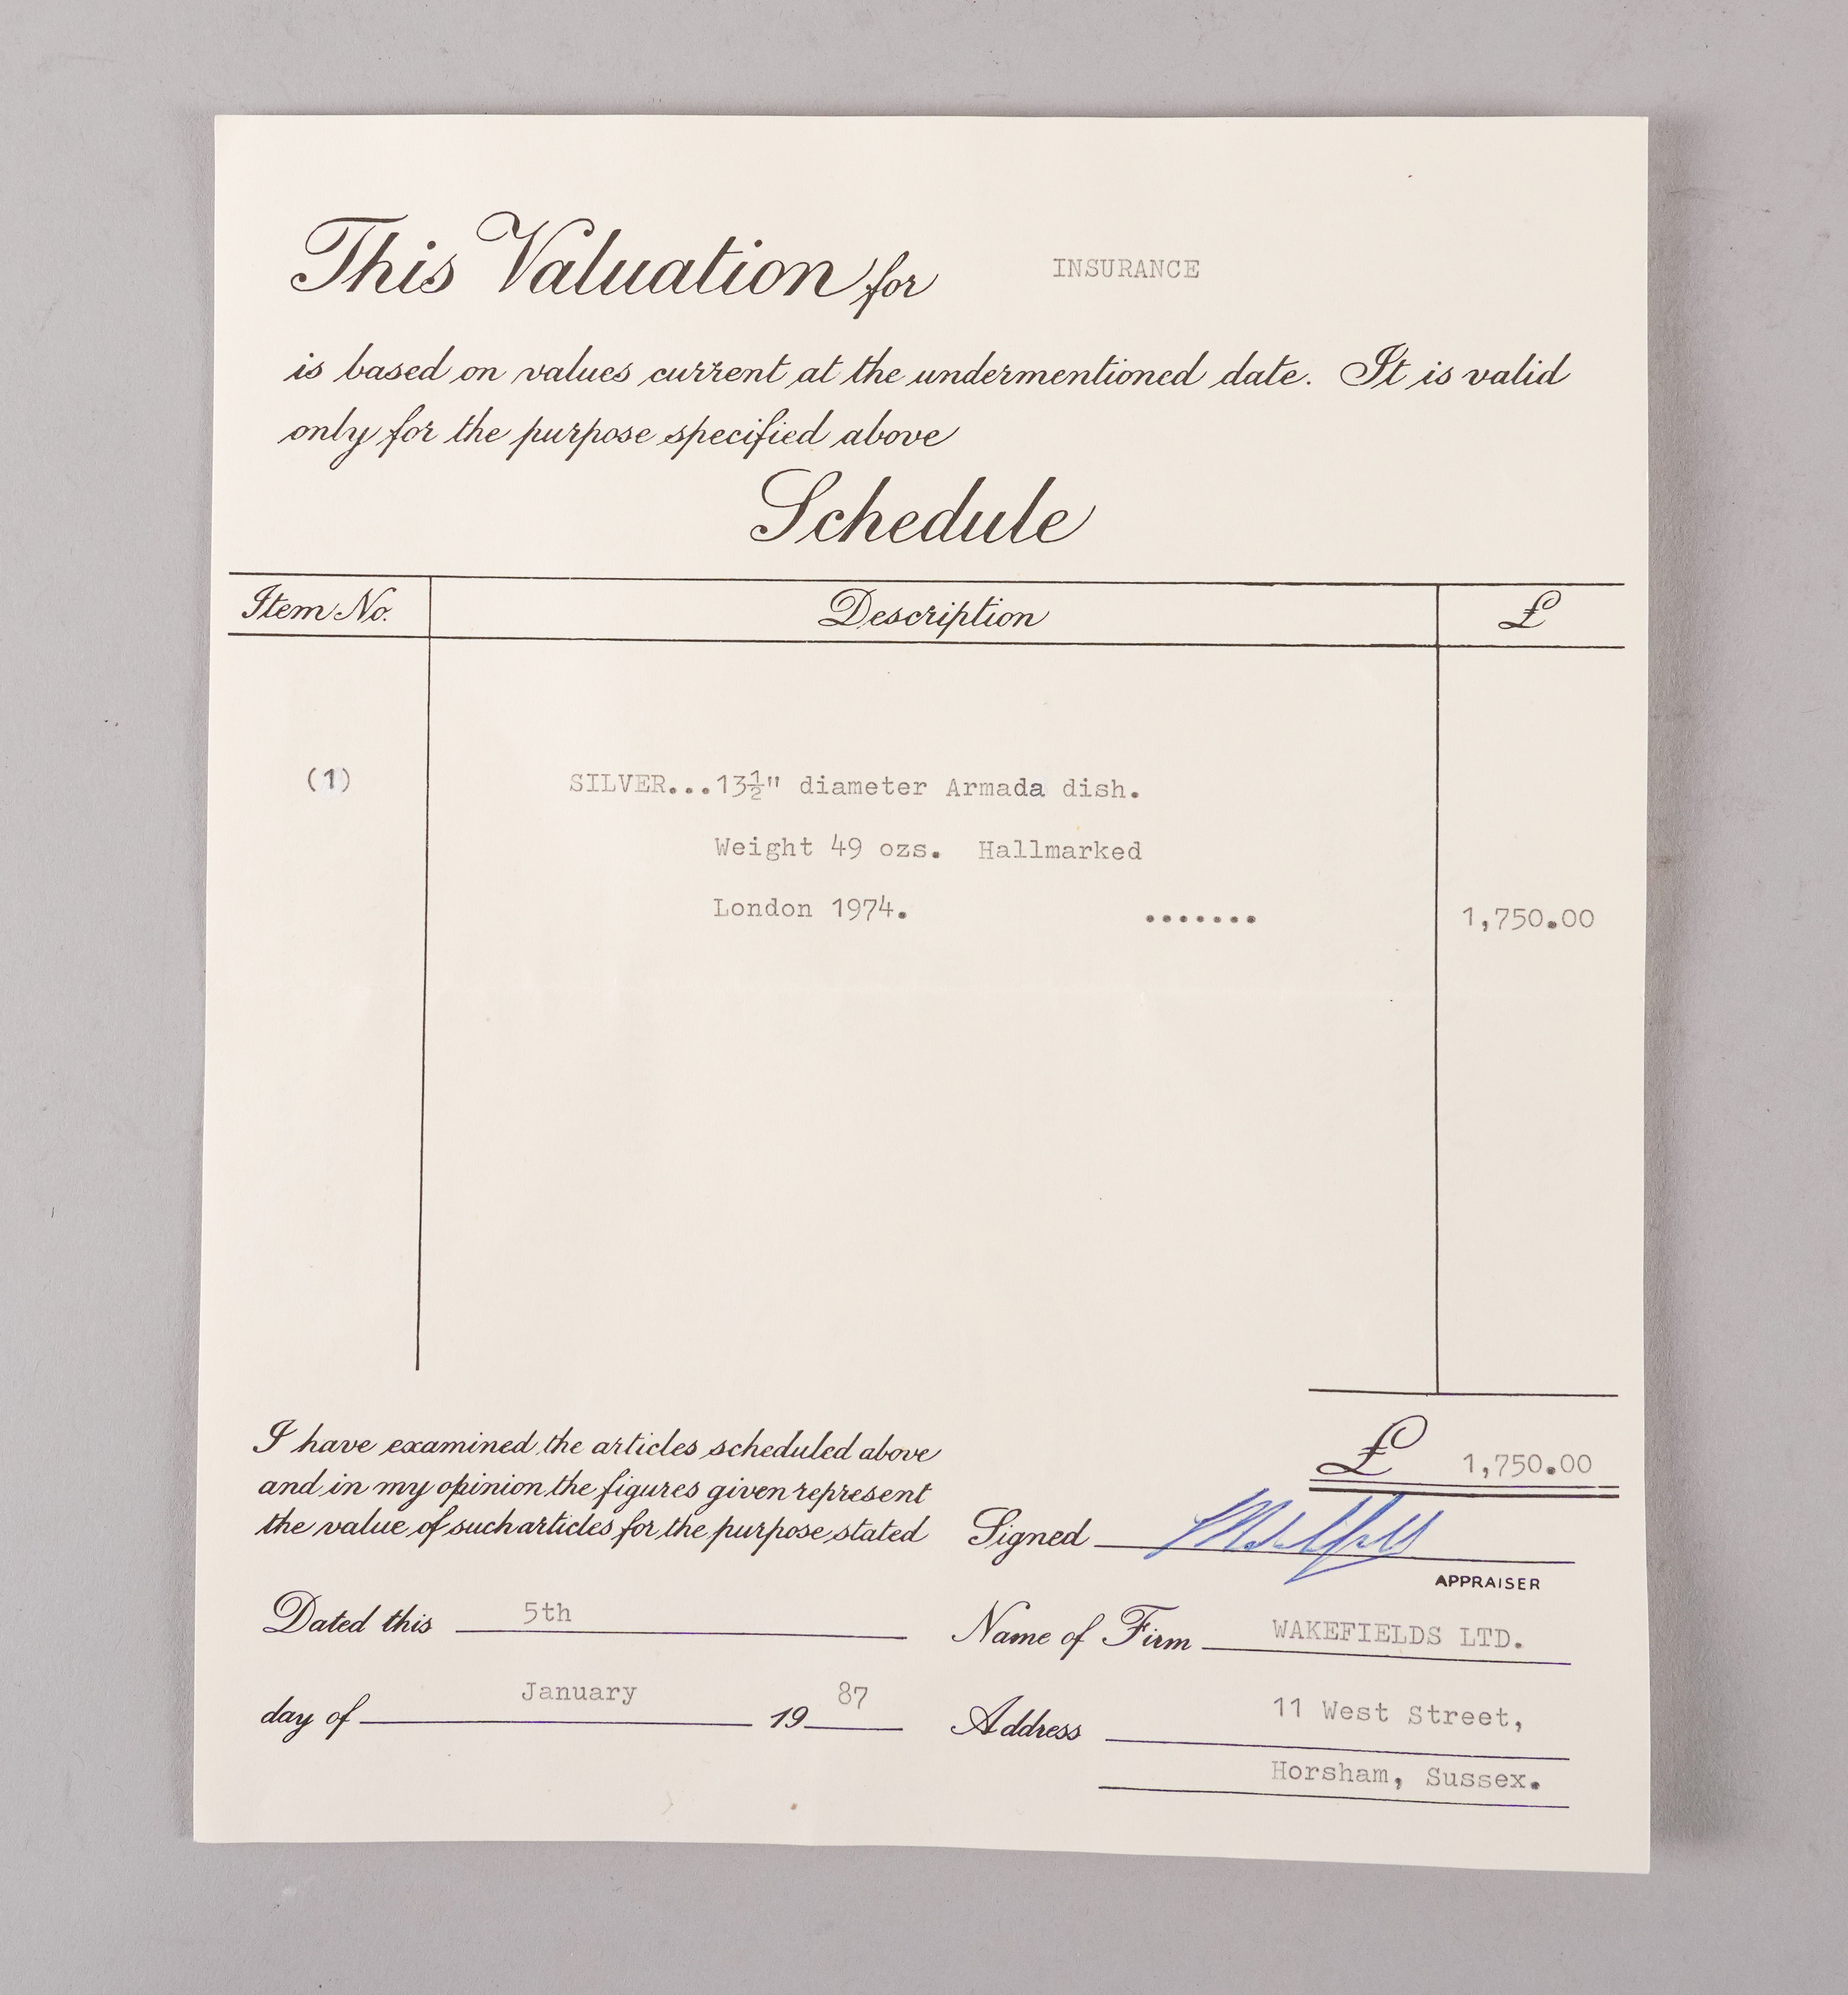 This Valuation for INSURANCE
is based on values current at the undermentioned date. It is valid
only for the purpose specified above
Schedule
Item No. Description £
(1) SILVER...13½" diameter Armada dish.
Weight 49 ozs. Hallmarked
London 1974. ....... 1,750.00
£ 1,750.00
I have examined the articles scheduled above
and in my opinion the figures given represent
the value of such articles for the purpose stated
Signed
APPRAISER
Dated this 5th
day of January 1987
Name of Firm WAKEFIELDS LTD.
Address 11 West Street,
Horsham, Sussex.